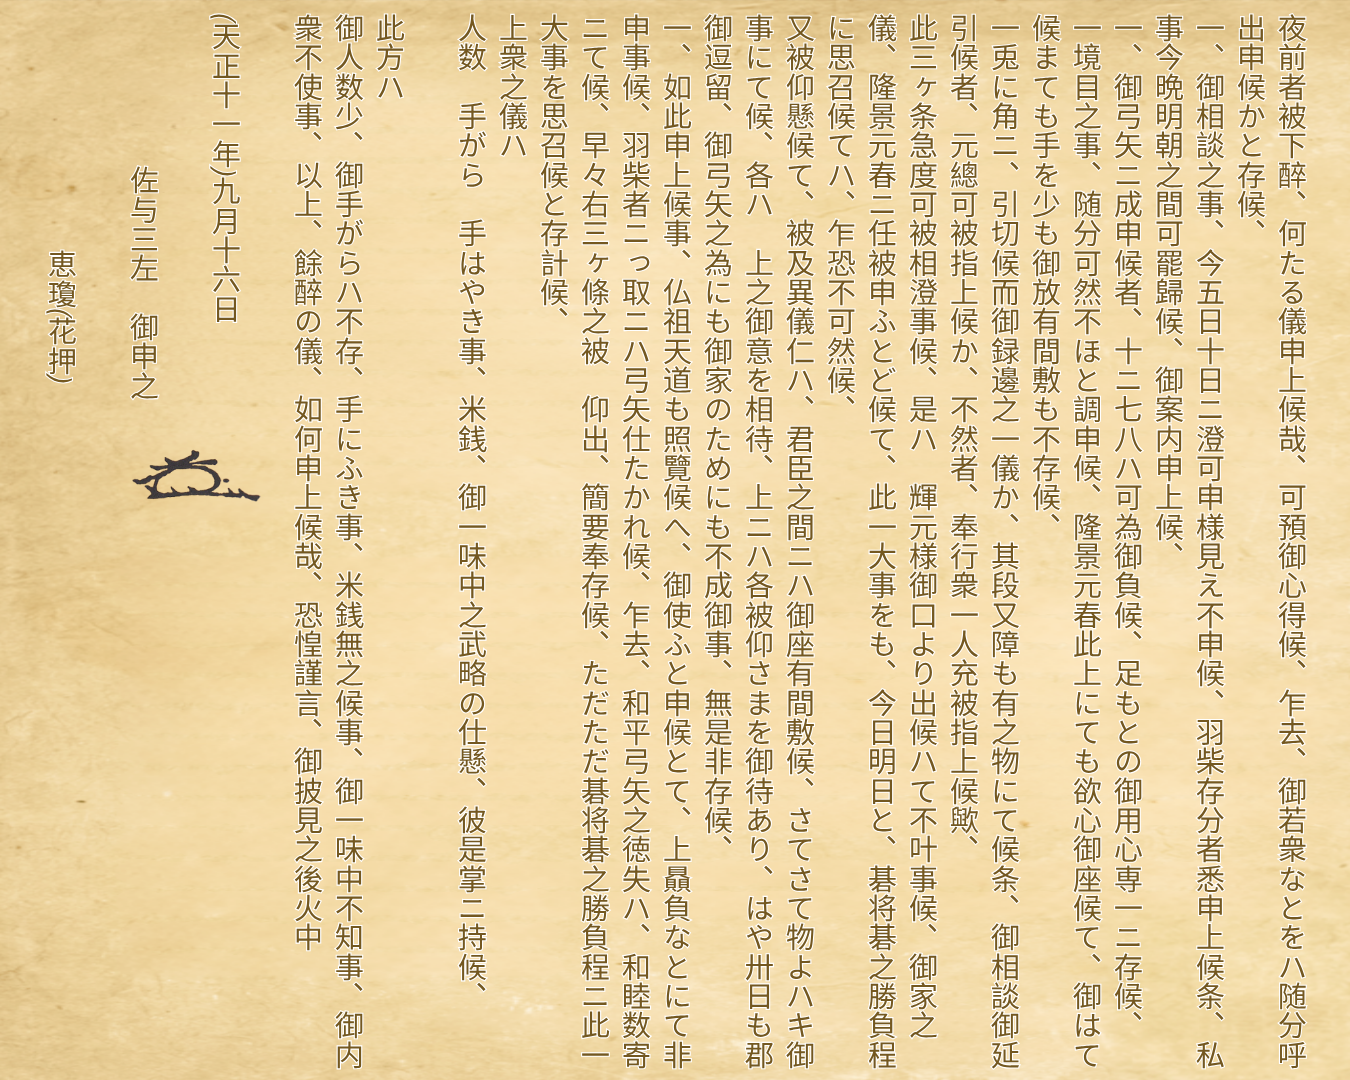 夜前者被下醉、何たる儀申上候哉、可預御心得候、乍去、御若衆なとをハ随分呼
出申候かと存候、
一、御相談之事、今五日十日ニ澄可申様見え不申候、羽柴存分者悉申上候条、私
事今晩明朝之間可罷歸候、御案内申上候、
一、御弓矢ニ成申候者、十ニ七八ハ可為御負候、足もとの御用心専一ニ存候、
一境目之事、随分可然不ほと調申候、隆景元春此上にても欲心御座候て、御はて
候まても手を少も御放有間敷も不存候、
一兎に角ニ、引切候而御録邊之一儀か、其段又障も有之物にて候条、御相談御延
引候者、元總可被指上候か、不然者、奉行衆一人充被指上候歟、
此三ヶ条急度可被相澄事候、是ハ　輝元様御口より出候ハて不叶事候、御家之
儀、隆景元春ニ任被申ふとど候て、此一大事をも、今日明日と、碁将碁之勝負程
に思召候てハ、乍恐不可然候、
又被仰懸候て、被及異儀仁ハ、君臣之間ニハ御座有間敷候、さてさて物よハキ御
事にて候、各ハ　上之御意を相待、上ニハ各被仰さまを御待あり、はや卅日も郡
御逗留、御弓矢之為にも御家のためにも不成御事、無是非存候、
一、如此申上候事、仏祖天道も照覽候へ、御使ふと申候とて、上贔負なとにて非
申事候、羽柴者ニっ取ニハ弓矢仕たかれ候、乍去、和平弓矢之徳失ハ、和睦数寄
ニて候、早々右三ヶ條之被　仰出、簡要奉存候、ただただ碁将碁之勝負程ニ此一
大事を思召候と存計候、
上衆之儀ハ
人数　手がら　手はやき事、米銭、御一味中之武略の仕懸、彼是掌ニ持候、
此方ハ
御人数少、御手がらハ不存、手にふき事、米銭無之候事、御一味中不知事、御内
衆不使事、以上、餘醉の儀、如何申上候哉、恐惶謹言、御披見之後火中
(天正十一年)九月十六日
佐与三左　御申之
恵瓊(花押)